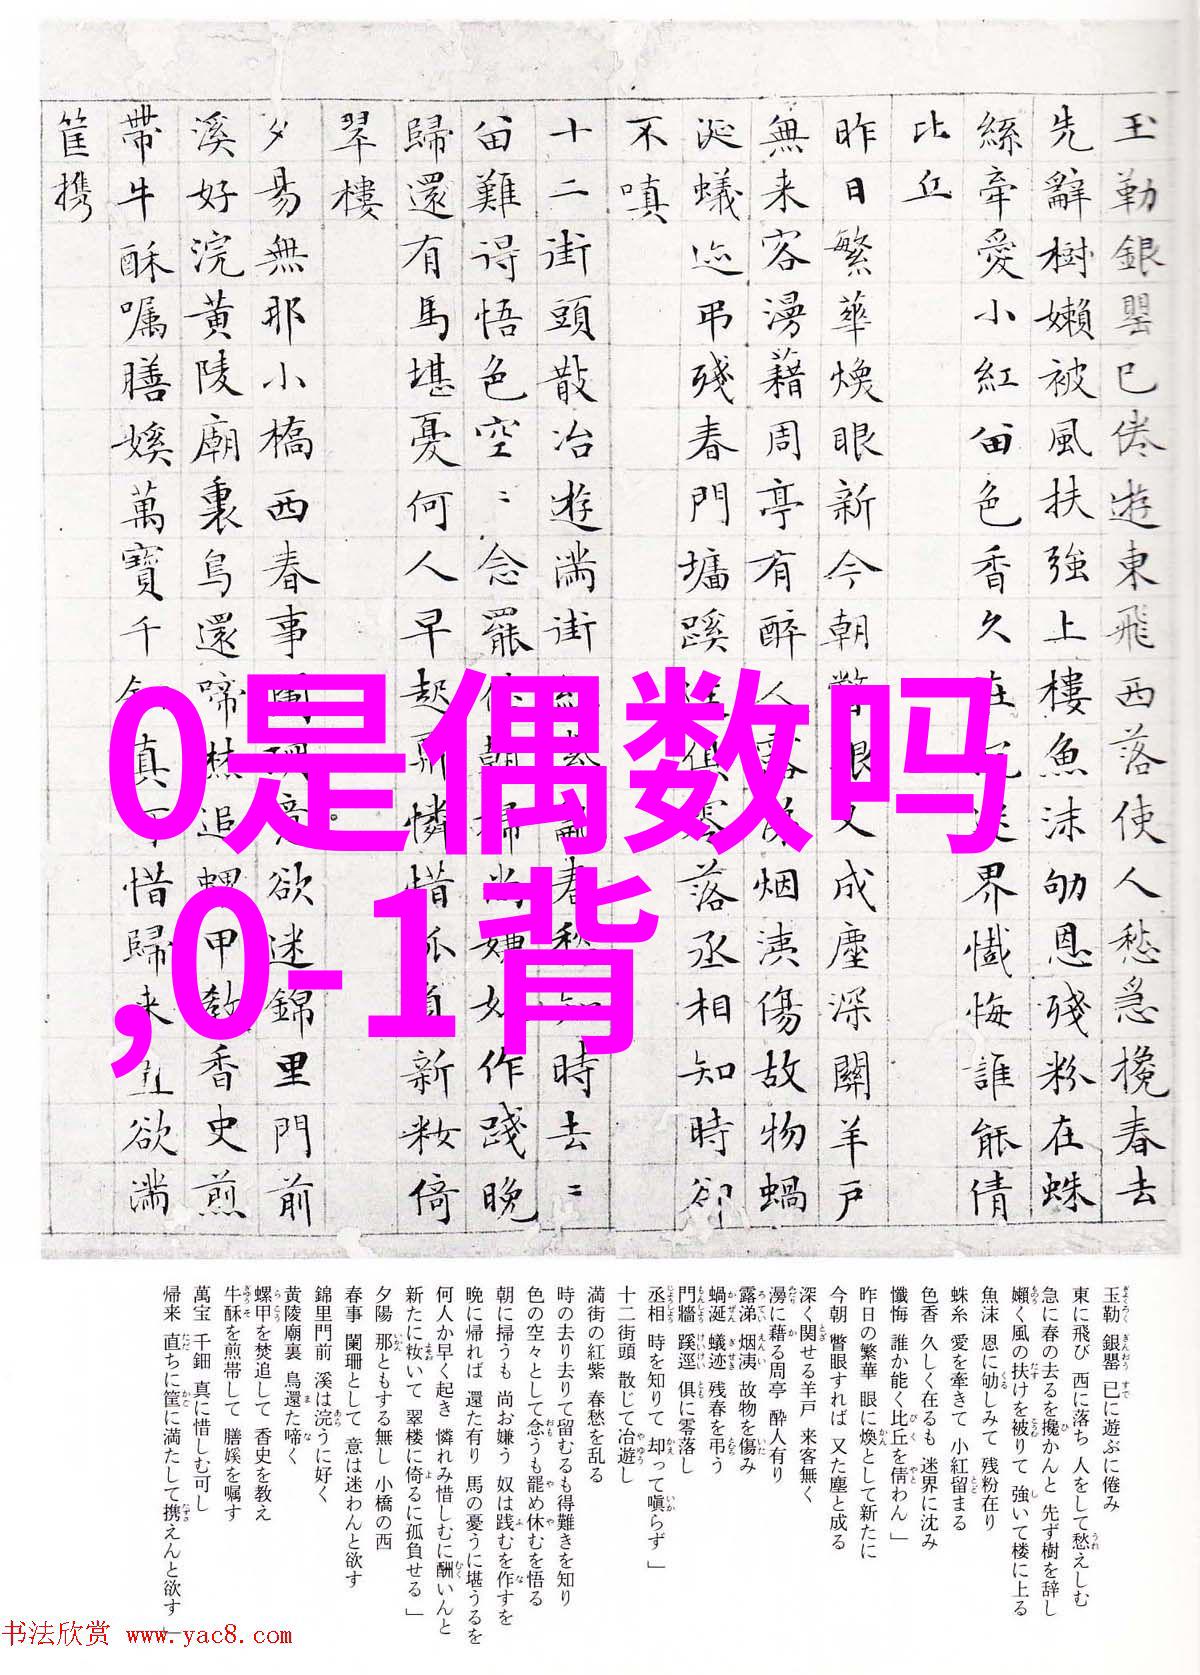 玉勒銀罌已倦遊東飛西落使人愁急攙春去
先辭樹嬾被風扶強上樓魚沫劬恩殘粉在蛛
絲牽愛小紅留色香久在沉迷界懺悔誰能倩
比丘
昨日繁華煥眼新今朝瞥眼又成塵深關羊戶
無来客漫藉周亭有醉人露涕烟洟傷故物蝸
涎蟻迹弔殘春門墻蹊逕俱零落丞相知時卻
不嗔
十二街頭散冶遊滿街紅紫亂春愁知時去〻
留難得悟色空〻念罷休朝掃尚嫌奴作踐晚
歸還有馬堪憂何人早起酬憐惜孤負新妝倚
翠樓
夕易無那小橋西春事闌珊意欲迷錦里門前
溪好浣黃陵廟裏鳥還啼焚追螺甲教香史煎
帶牛酥囑膳媛萬寶千鈿真可惜歸来直欲滿
筐携
0是偶数吗
,0-1背
玉勒 銀罌 已に遊ぶに倦み
東に飛び 西に落ち 人をして愁えしむ
急に春の去るを攙かんと 先ず樹を辞し
嬾く風の扶けを被りて 強いて楼に上る
魚沫 恩に劬しみて 残粉在り
蛛糸 愛を牽きて 小紅留まる
色香 久しく在るも 迷界に沈み
懺悔 誰か能く比丘を倩わん」
昨日の繁華 眼に煥として新たに
今朝 瞥眼すれば 又た塵と成る
深く関せる羊戸 来客無く
漫に藉る周亭 酔人有り
露涕 烟洟 故物を傷み
蝸涎 蟻迹 残春を弔う
門牆 蹊逕 倶に零落し
丞相 時を知りて 却って嗔らず」
十二街頭 散じて冶遊し
満街の紅紫 春愁を乱る
時の去り去りて留むるも得難きを知り
色の空々として念うも罷め休むを悟る
朝に掃うも 尚お嫌う 奴は践むを作すを
晩に帰れば 還た有り 馬の憂うに堪うるを
何人か早く起き 憐れみ惜しむに酬いんと
新たに妝いて 翠楼に倚るに孤負せる」
夕陽 那ともする無し 小橋の西
春事 闌珊として 意は迷わんと欲す
錦里門前 溪は浣うに好く
黄陵廟裏 鳥還た啼く
螺甲を焚追して 香史を教え
牛酥を煎帯して 膳媛を嘱す
萬宝 千鈿 真に惜しむ可し
帰来 直ちに筐に満たして携えんと欲す」
书法欣赏 www.yac8.com